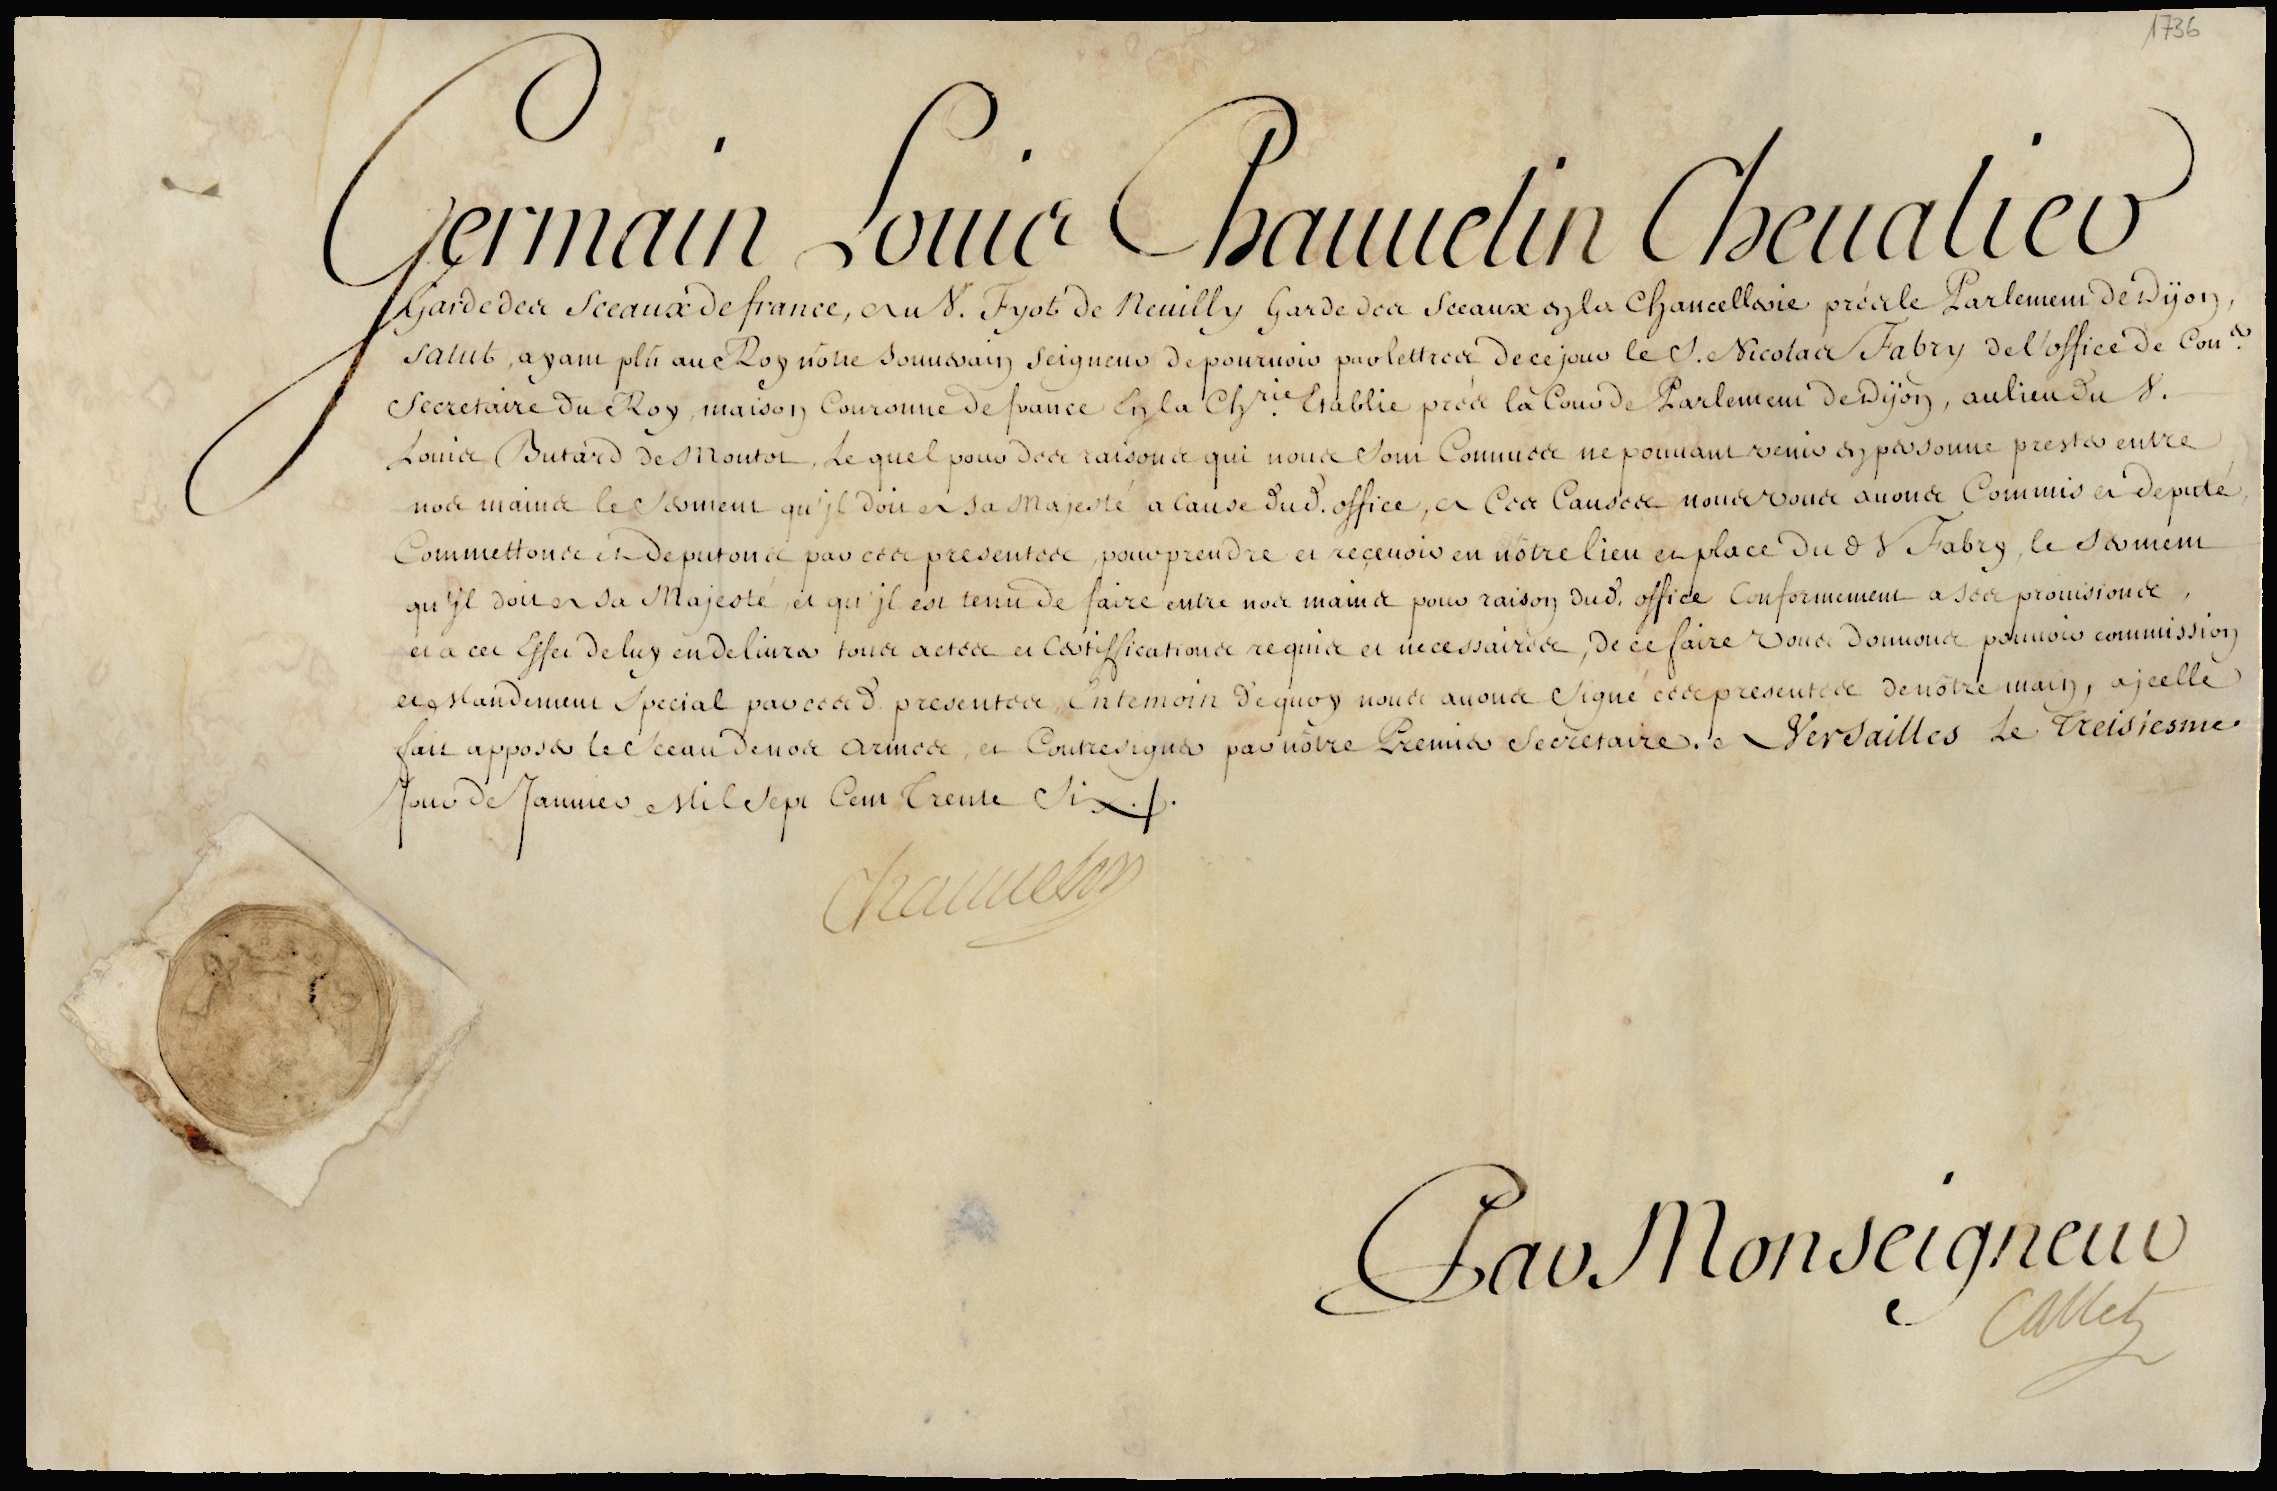 1736
Germain Louis Chauuelin Cheualier
Garde des Sceaux de france, au S. Fyot de Neuilly Garde des Sceaux en la Chancellerie prés le Parlement de Dijon,
Salut, ayant plû au Roy nôtre Souuerain Seigneur de pouruoir par lettres de ce jour le S. Nicolas Fabry de l'office de Con.er
Secretaire du Roy, maison Couronne de france En la Ch.rie Etablie prés la Cour de Parlement de Dijon, au lieu du S.
Louis Butard De Montot, Lequel pour des raisons qui nous sont Connues ne pouuant venir en personne prester entre
nos mains le Serment qu'jl doit a Sa Majesté a cause dud. office, a Ces Causes nous vous auons Commis et deputé,
Commettons et Deputons par ces presentes, pour prendre et reçeuoir en nôtre lieu et place du d S Fabry, le Serment
qu'jl doit a Sa Majesté, et qu'jl est tenu de faire entre nos mains pour raison dud. office Conformement a ses prouisions,
et a cet Effet de luy en deliurer tous actes et Certiffications requis et necessaires, de ce faire Vous donnons pouuoir commission
et Mandement Special par cesd. presentes, En temoin de quoy nous auons signé ces presentes de nôtre main, a jcelle
fait apposer le Sceau de nos Armes, et Contresigner par nôtre Premier Secretaire. a Versailles Le Treisiesme
Jour de Januier Mil Sept Cent Trente Six.
Chauuelin
Par Monseigneur